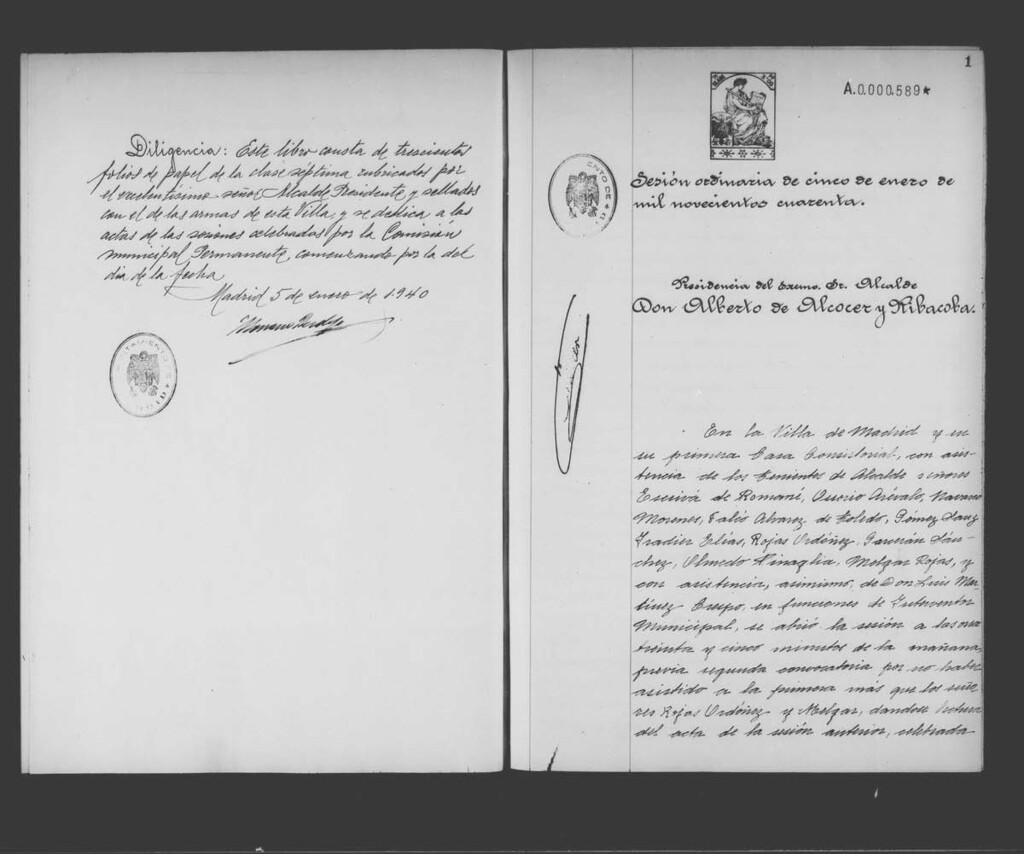 Diligencia: Este libro consta de trescientos
folios de papel de la clase séptima rubricados por
el excelentísimo señor Alcalde Presidente y sellados
con el de las armas de esta Villa, y se dedica a las
actas de las sesiones celebradas por la Comisión
municipal Permanente, comenzando por la del
día de la fecha
Madrid 5 de enero de 1.940
1
A.0.000.589*
Sesión ordinaria de cinco de enero de
mil novecientos cuarenta.
Presidencia del Excmo. Sr. Alcalde
Don Alberto de Alcocer y Ribacoba.
En la Villa de Madrid y en
su primera Casa Consistorial, con asis-
tencia de los Tenientes de Alcalde señores
Escrivá de Romaní, Osorio Arévalo, Navarro
Morenes, Falcó Alvarez de Toledo, Gómez Sanz
Iradier Elías, Rojas Ordóñez, Sán-
chez, Olmedo Vinaglia, Melgar Rojas, y
con asistencia, asimismo, de Don Luis Mar-
tínez Crespo, en funciones de Interventor
Municipal, se abrió la sesión a las
treinta y cinco minutos de la mañana,
previa segunda convocatoria por no haber
asistido a la primera más que los seño-
res Rojas Ordóñez y Melgar, dandose lectura
del acta de la sesión anterior, celebrada